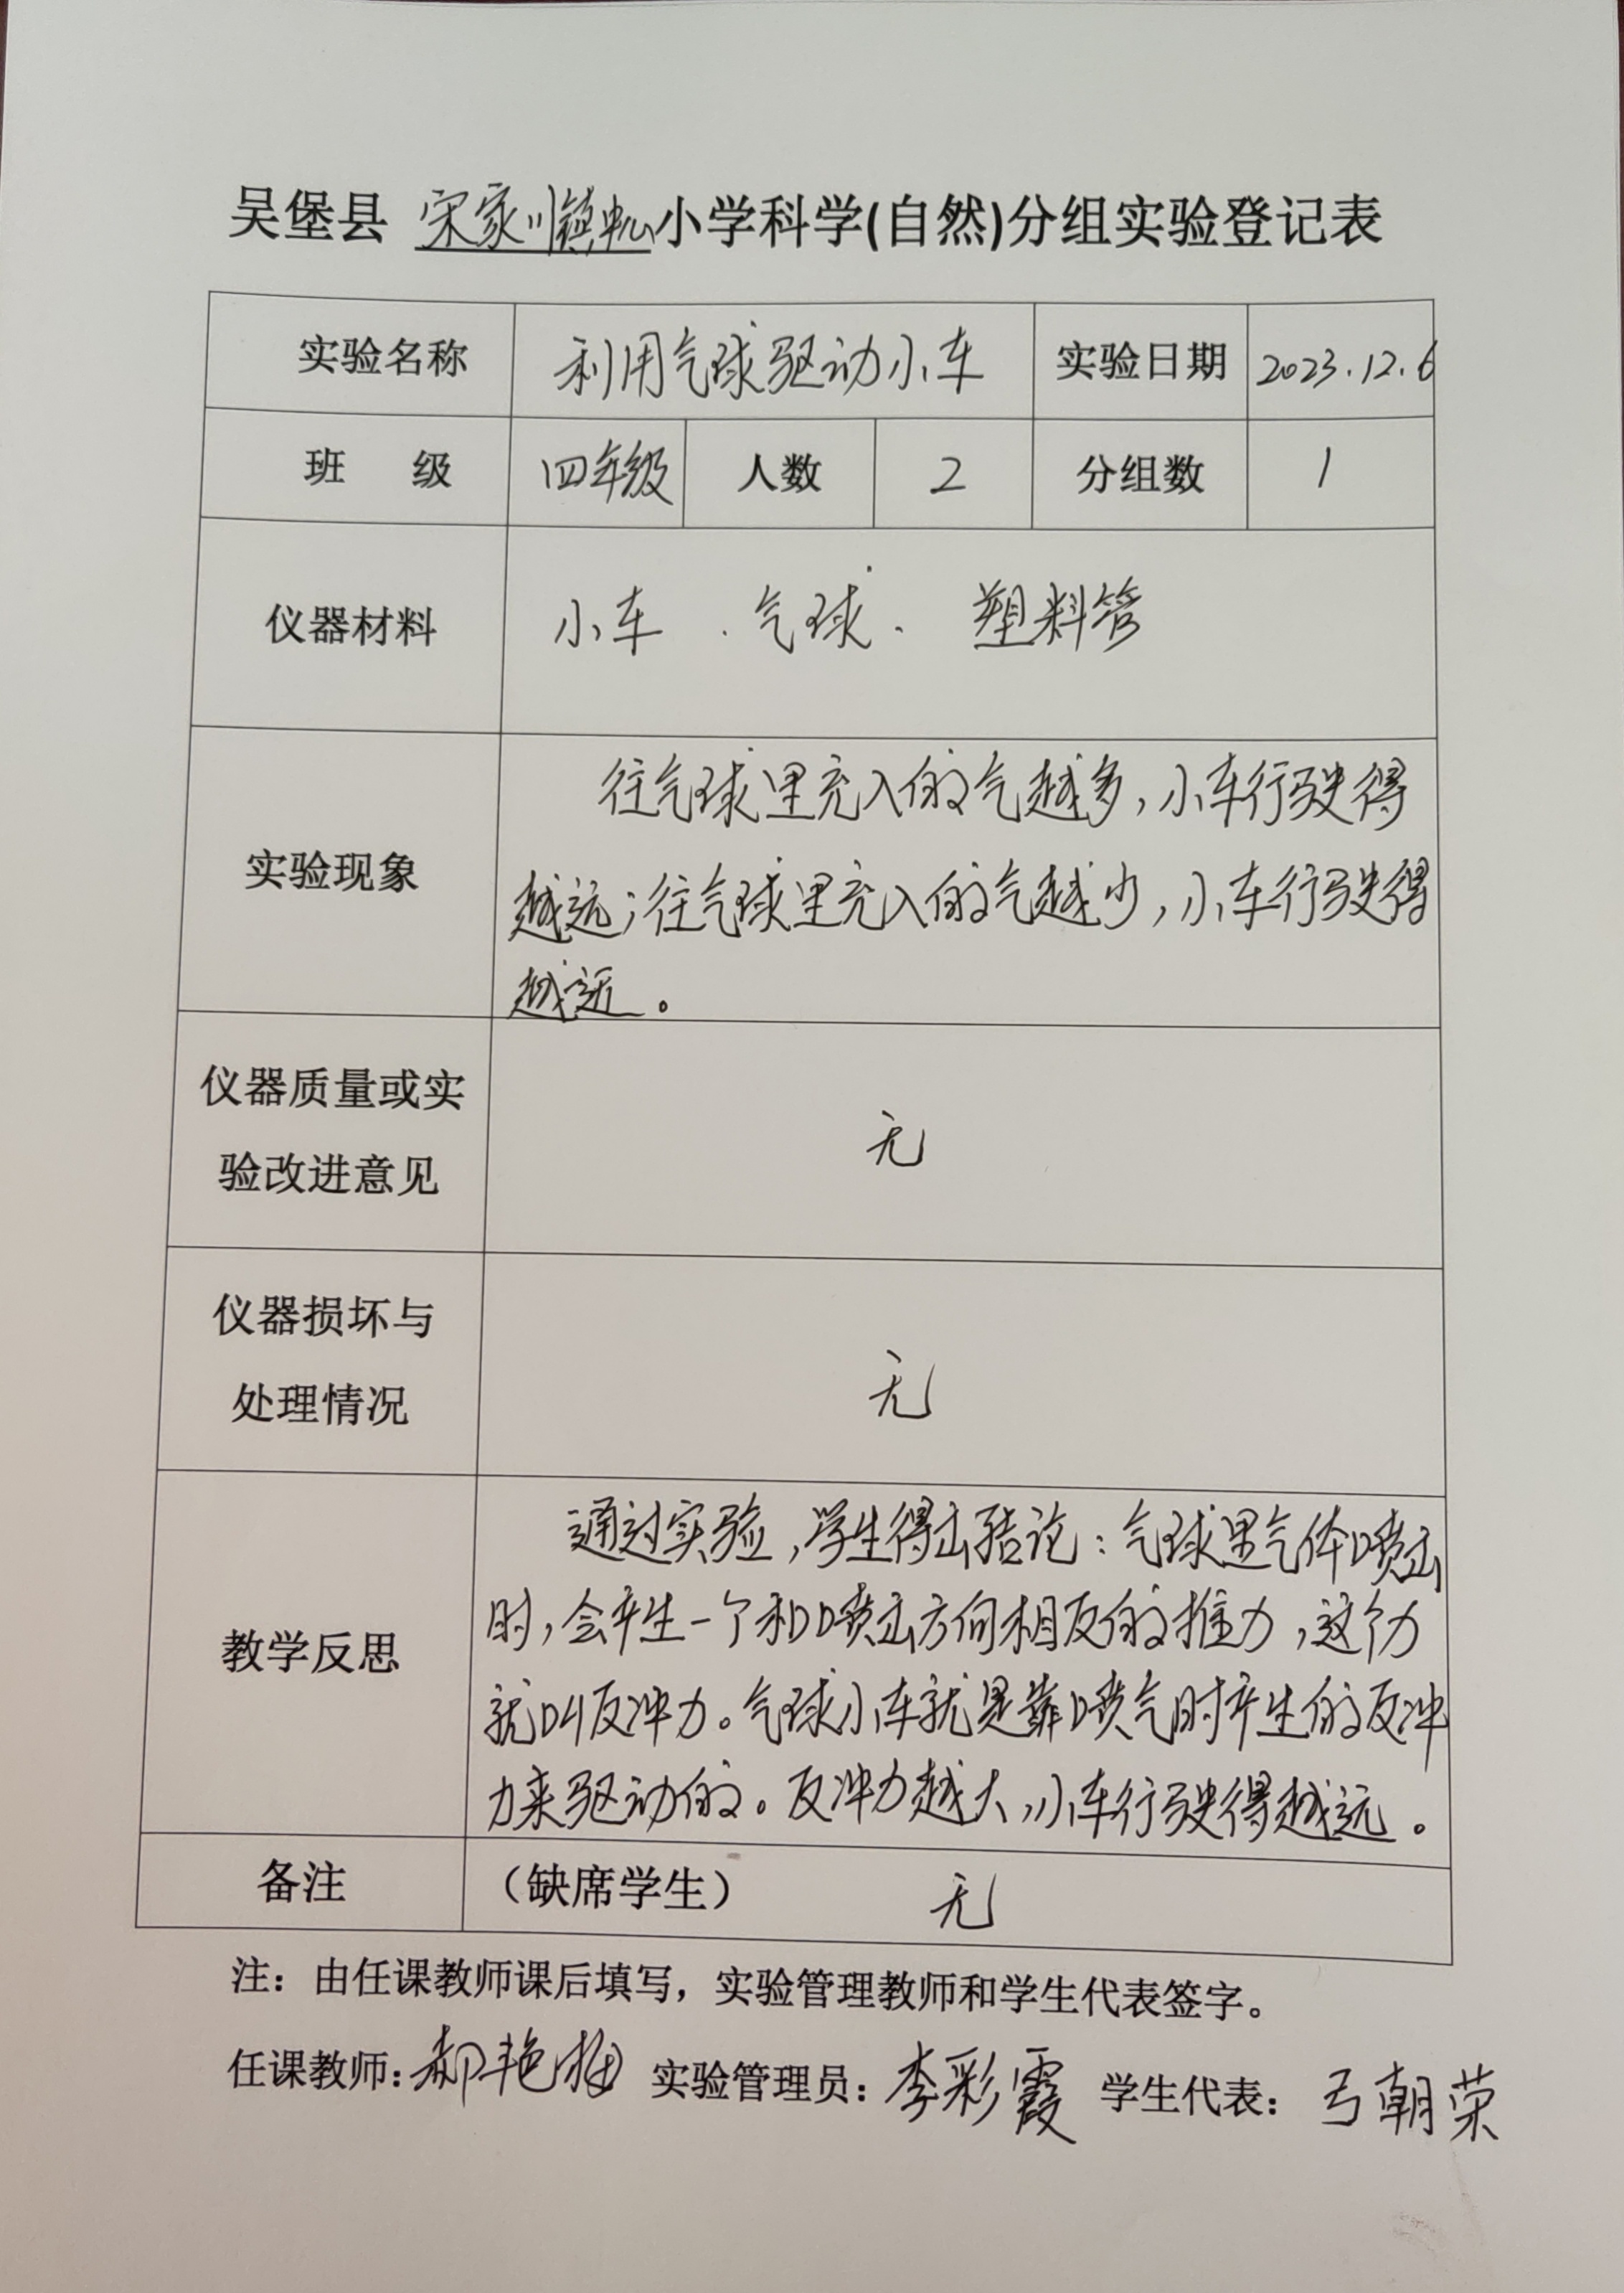 吴堡县 宋家川镇中心小学科学(自然)分组实验登记表
实验名称 利用气球驱动小车 实验日期 2023.12.6
班 级 四年级 人数 2 分组数 1
仪器材料 小车 、气球、 塑料管
实验现象
往气球里充入的气越多,小车行驶得
越远;往气球里充入的气越少,小车行驶得
越近。
仪器质量或实
验改进意见
无
仪器损坏与
处理情况
无
教学反思
通过实验,学生得出结论:气球里气体喷出
时,会产生一个和喷出方向相反的推力,这个力
就叫反冲力。气球小车就是靠喷气时产生的反冲
力来驱动的。反冲力越大,小车行驶得越远。
备注 (缺席学生) 无
注:由任课教师课后填写,实验管理教师和学生代表签字。
任课教师:郝艳梅 实验管理员:李彩霞 学生代表: 弓朝荣